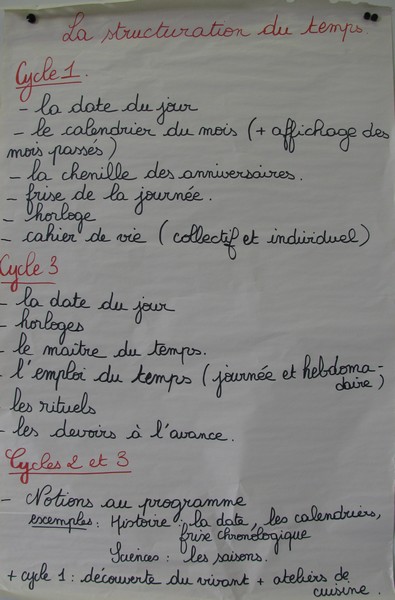 La structuration du temps.
Cycle 1.
- la date du jour
- le calendrier du mois (+ affichage des
mois passés)
- la chenille des anniversaires.
- frise de la journée.
- horloge
- cahier de vie (collectif et individuel)
Cycle 3
- la date du jour
- horloges
- le maître du temps.
- l'emploi du temps (journée et hebdoma-
daire)
les rituels
- les devoirs à l'avance.
Cycles 2 et 3
- Notions au programme
exemples : Histoire : la date, les calendriers,
frise chronologique
Sciences : les saisons.
+ cycle 1 : découverte du vivant + ateliers de
cuisine.